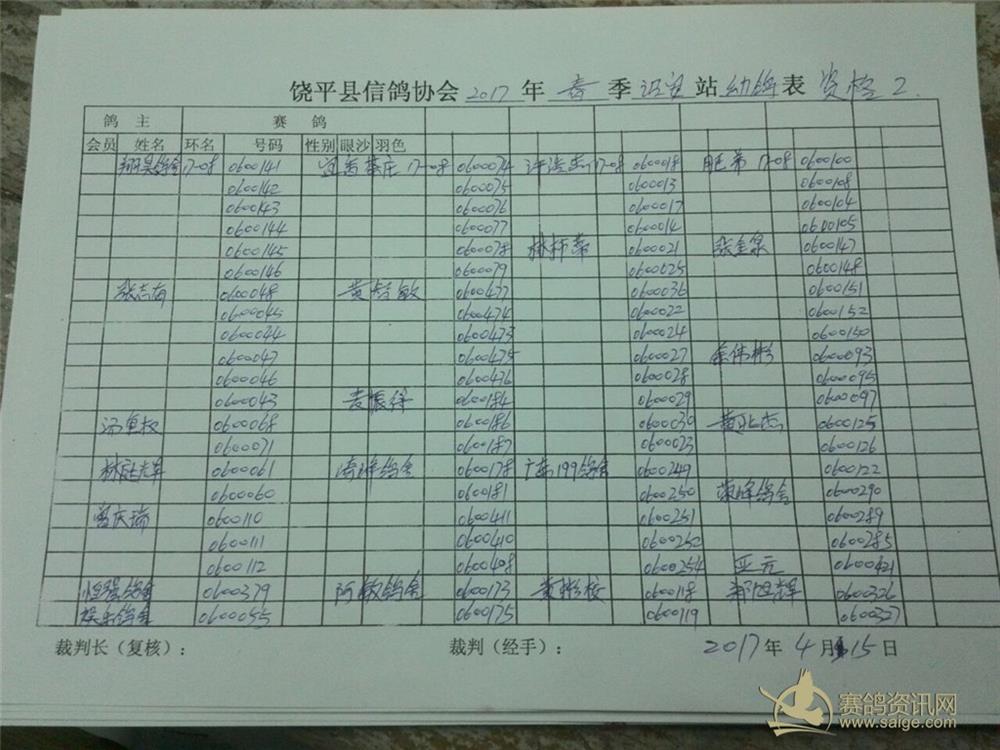 饶平县信鸽协会 2017 年 春 季 站 幼鸽 表 资格 2.
鸽 主 赛 鸽
会员 姓名 环名 号码 性别 眼沙 羽色
17-08 0600141 17-08 0600074 17-08 0600018 肥弟 17-08 0600100
0600142 0600075 0600013 0600108
0600143 0600076 0600017 0600104
0600144 0600077 0600014 0600105
0600145 0600078 0600021 张金泉 0600147
0600146 0600079 0600025 0600148
0600048 0600477 0600036 0600151
0600045 0600474 0600022 0600152
0600044 0600473 0600024 0600150
0600047 0600475 0600027 余伟彬 0600093
0600046 0600476 0600028 0600095
0600043 0600184 0600029 0600097
0600068 0600186 0600030 0600125
0600071 0600187 0600023 0600126
0600061 鸽舍 0600178 广东199鸽舍 0600249 0600122
0600060 0600181 0600250 荣峰鸽舍 0600290
曾庆瑞 0600110 0600411 0600251 0600289
0600111 0600410 0600252 0600285
0600112 0600408 0600254 亚元 0600421
恒强鸽舍 0600379 阿敏鸽舍 0600173 0600118 郑旭辉 0600326
鸽舍 0600055 0600175 0600119 0600327
裁判长（复核）： 裁判（经手）： 2017 年 4 月 15 日
赛鸽资讯网
www.saige.com